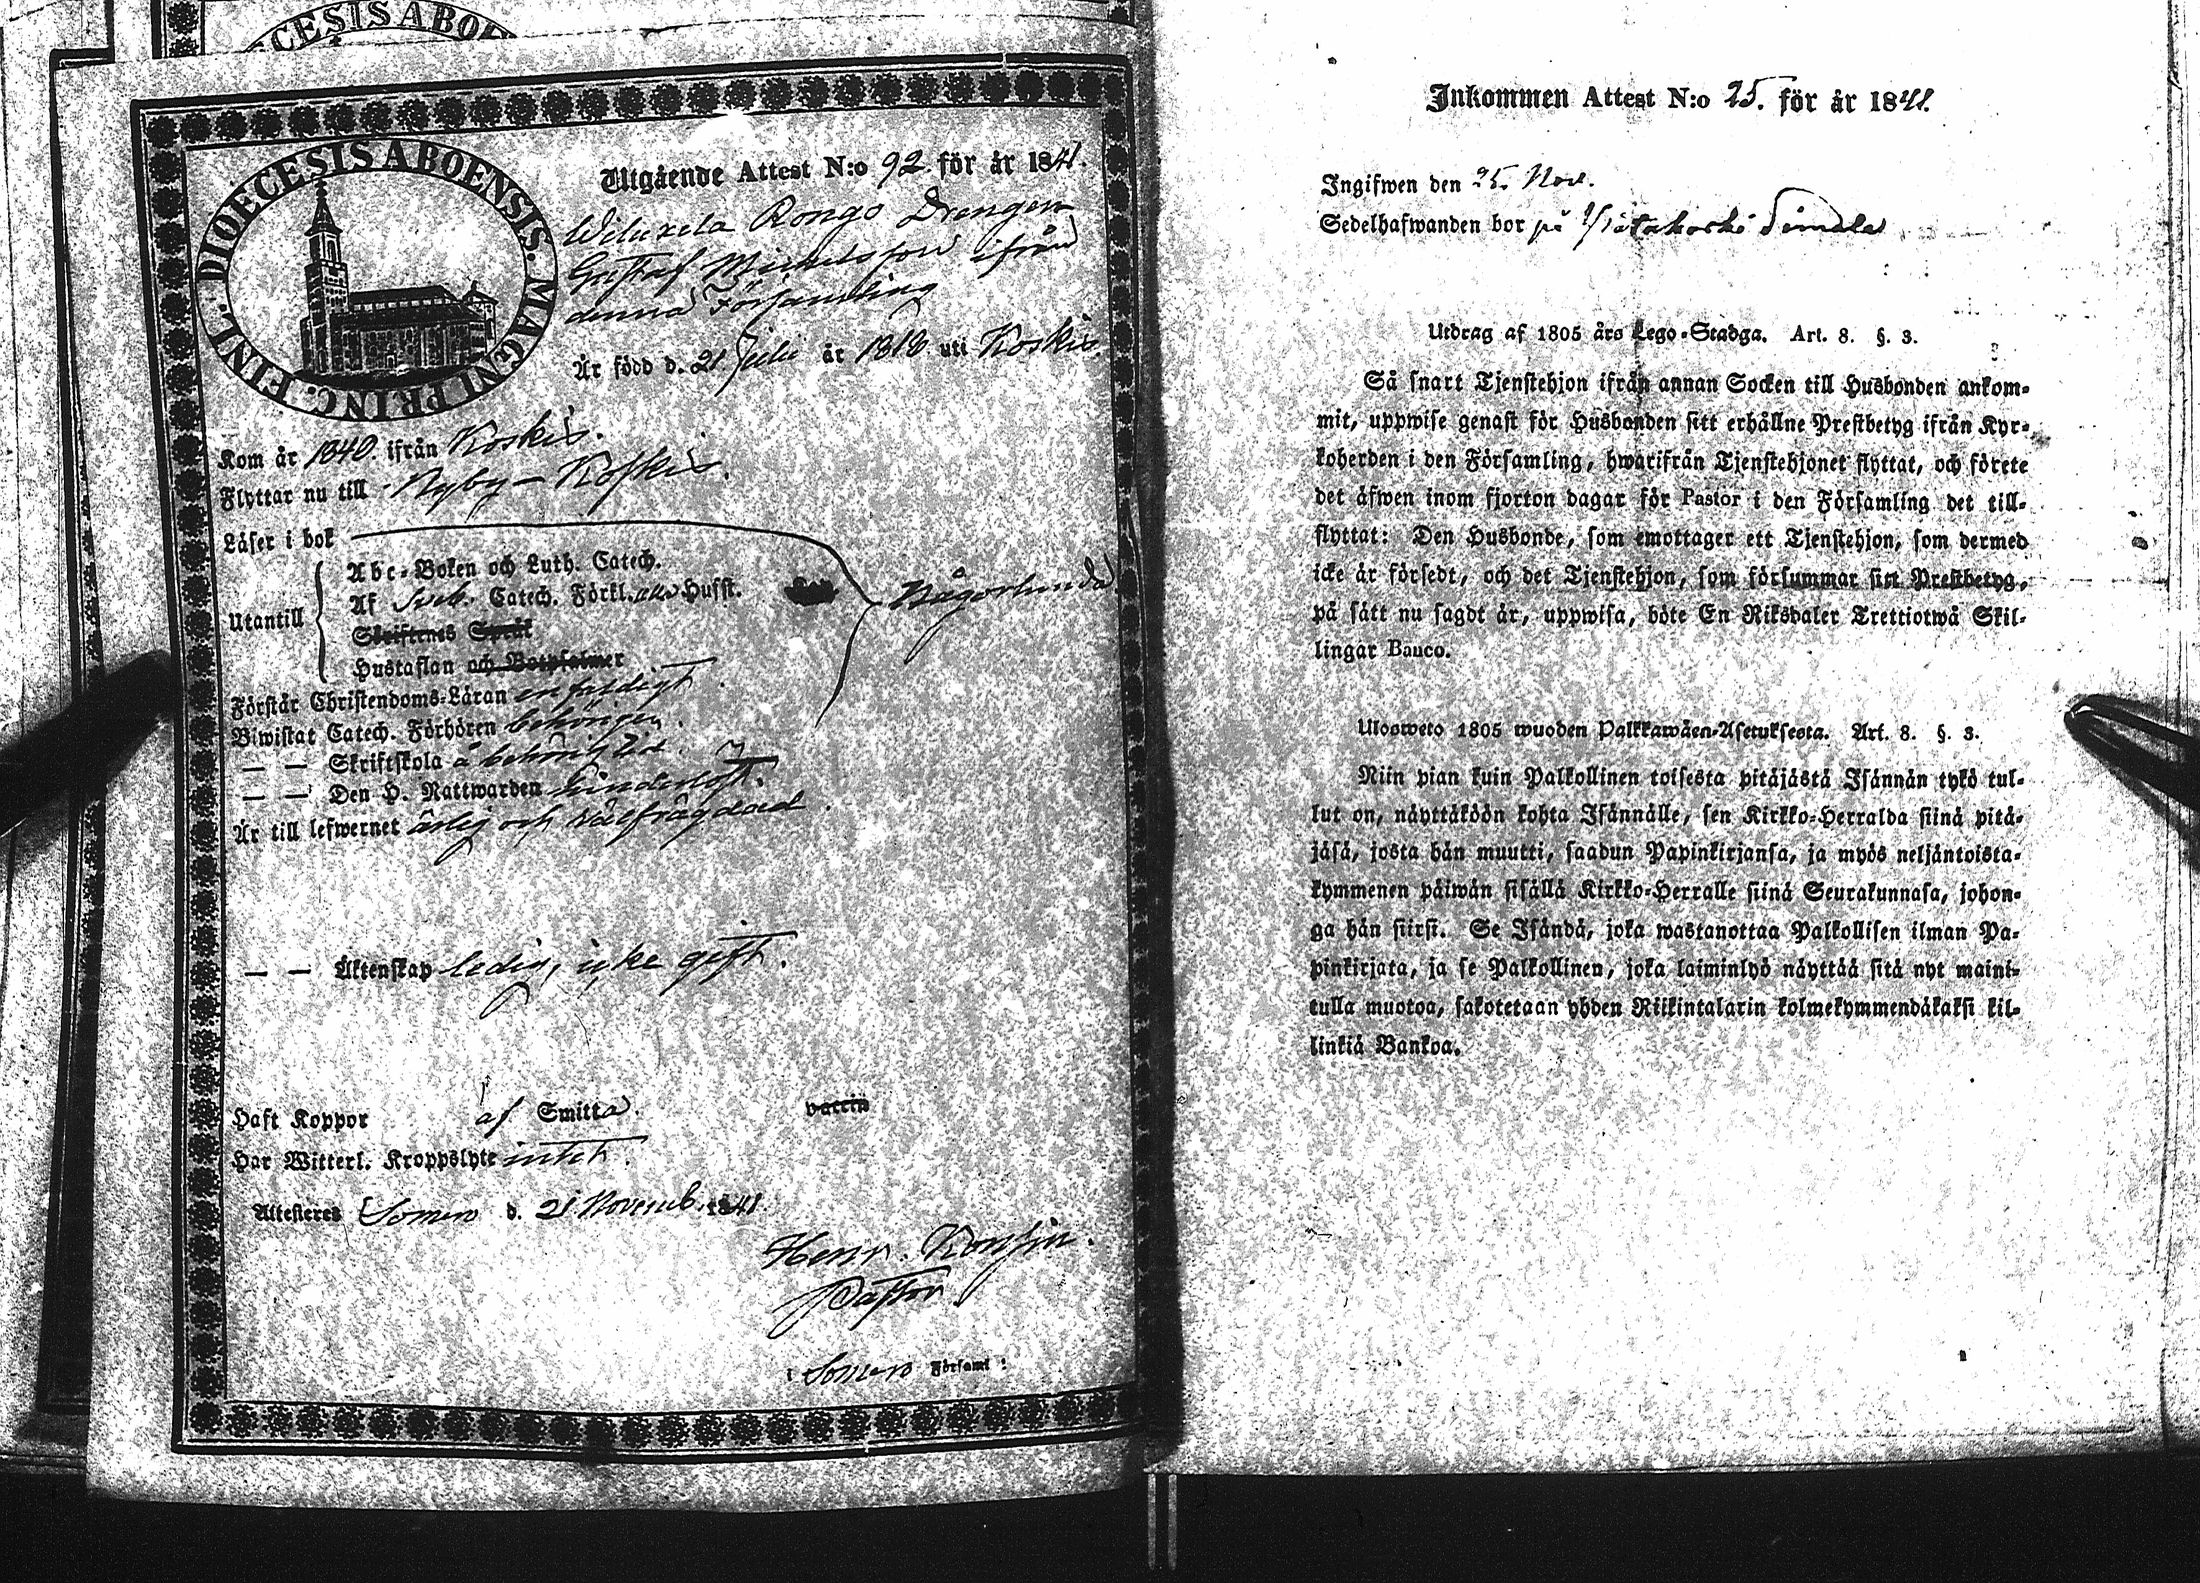 DIOECESIS ABOENSIS. MAGNI PRINC. FINL.
Utgående Attest N:o 92. för år 1841.
Rongo Drengen
Gustaf Michelsson ifrån
denna Församling
Är född d. 21 Julii år 1818 uti Koskis.
Kom år 1840. ifrån Koskis.
Flyttar nu till Nyby-Koskis.
Läser i bok
Utantill
Abc-Boken och Luth. Catech.
Af Sveb. Catech. Förkl. Hufst.
Någorlunda
Skriftenes Språk
Hustaflan och Botpsalmer
Förstår Christendoms-Läran enfaldigt.
Biwistat Catech. Förhören behörigen.
— — Skriftskola å behörig tid.
— — Den H. Nattwarden hinderlöst.
Är till lefwernet ärlig och välfrägdad.
— — Äktenskap ledig, icke gift.
Haft Koppor af Smitta. vaccin
Har Witterl. Kroppslyte intet.
Attesteres Somero d. 21 Novemb. 1841.
Henr. Konsin.
Pastor
i Somero Församl:
Inkommen Attest N:o 25. för år 1841.
Ingifwen den 25. Nov.
Sedelhafwanden bor på Simala
Utdrag af 1805 års Lego-Stadga. Art. 8. §. 3.
Så snart Tjenstehjon ifrån annan Socken till Husbonden ankom-
mit, uppwise genast för Husbonden sitt erhållne Prestbetyg ifrån Kyr-
koherden i den Församling, hwarifrån Tjenstehjonet flyttat, och förete
det äfwen inom fjorton dagar för Pastor i den Församling det till-
flyttat: Den Husbonde, som emottager ett Tjenstehjon, som dermed
icke är försedt, och det Tjenstehjon, som försummar sitt Prestbetyg,
på sätt nu sagdt är, uppwisa, böte En Riksdaler Trettiotwå Skil-
lingar Banco.
Ulosweto 1805 wuoden Palkkawäen-Asetuksesta. Art. 8. §. 3.
Niin pian kuin Palkollinen toisesta pitäjästä Isännän tykö tul-
lut on, näyttäköön kohta Isännälle, sen Kirkko-Herralda siinä pitä-
jäsä, josta hän muutti, saadun Papinkirjansa, ja myös neljäntoista-
kymmenen päiwän sisällä Kirkko-Herralle siinä Seurakunnasa, johon-
ga hän siirsi. Se Isändä, joka wastanottaa Palkollisen ilman Pa-
pinkirjata, ja se Palkollinen, joka laiminlyö näyttää sitä nyt maini-
tulla muotoa, sakotetaan yhden Riikintalarin kolmekymmendäkaksi kil-
linkiä Bankoa.